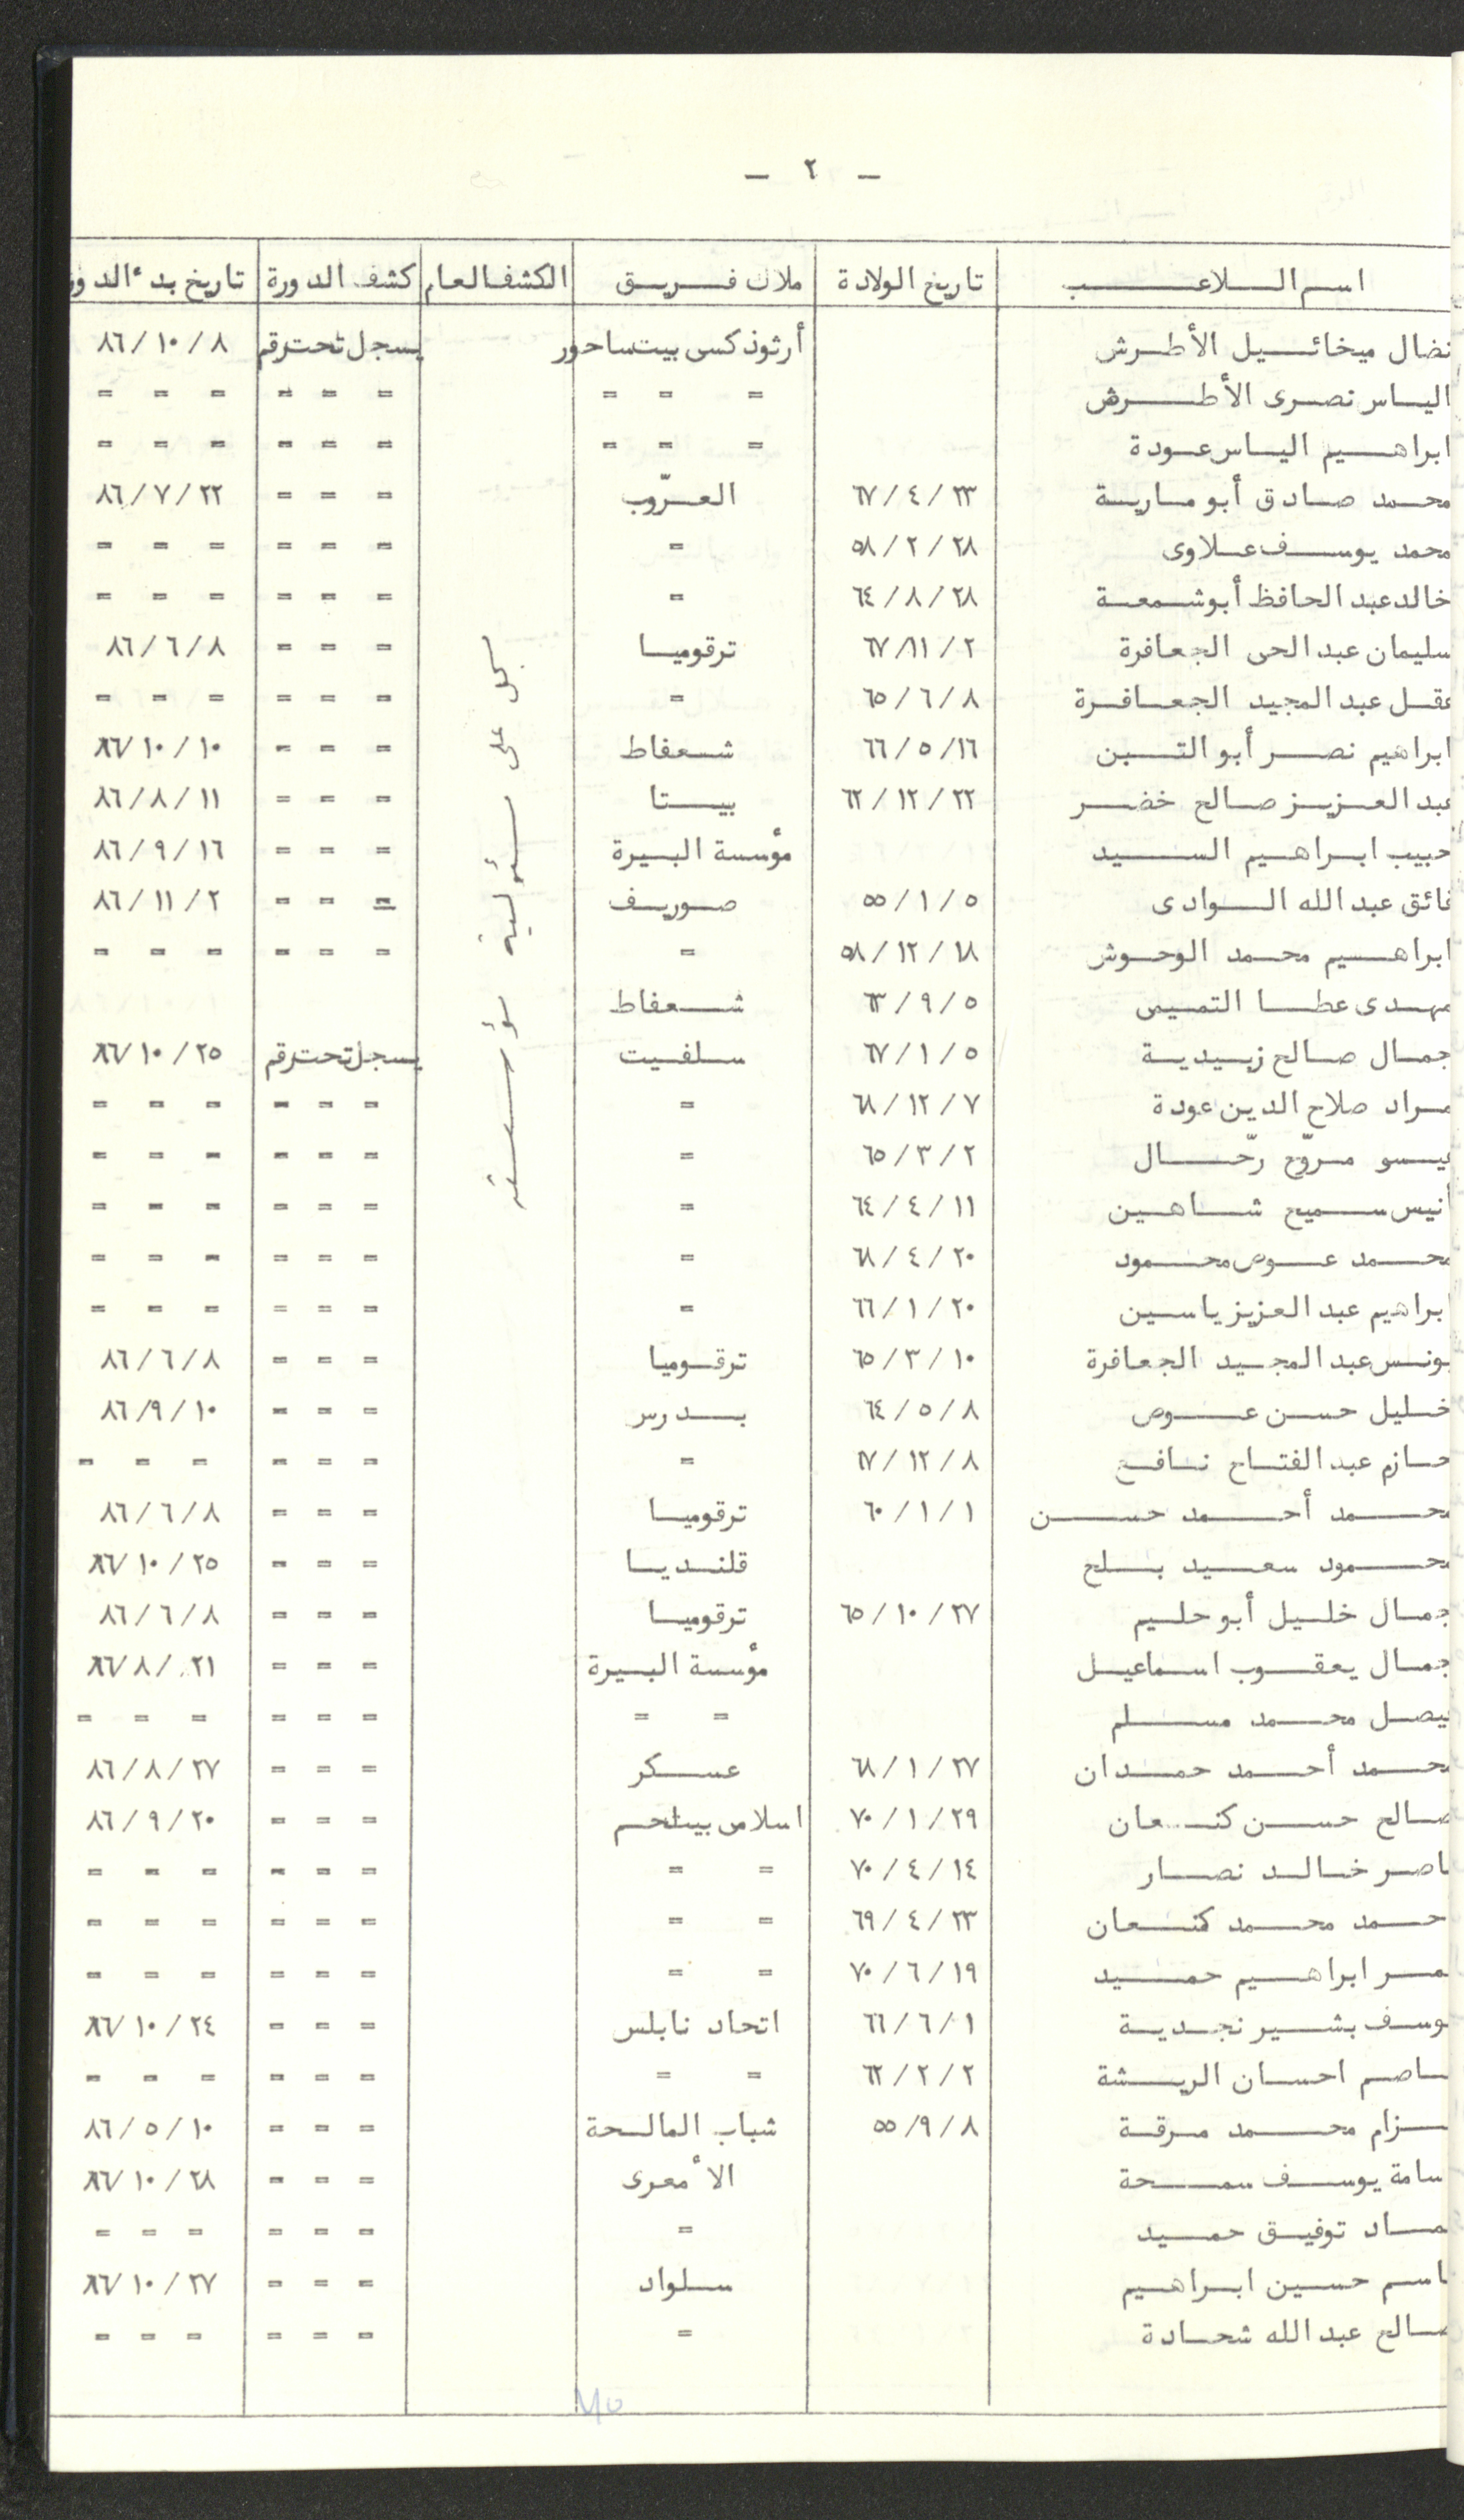 - ٢ -
اسم اللاعب تاريخ الولادة ملاك فريق الكشف العام كشف الدورة تاريخ بدء الدور
نضال ميخائيل الأطرش أرثوذكسى بيت ساحور يسجل تحت رقم ٨ / ١٠ / ٨٦
الياس نصرى الأطرش = = = = = = = = =
ابراهيم الياس عودة = = = = = = = = =
محمد صادق أبو مارية ٢٣ / ٤ / ٦٧ العرّوب = = = ٢٢ / ٧ / ٨٦
محمد يوسف علاوى ٢٨ / ٢ / ٥٨ = = = = = = =
خالد عبد الحافظ أبو شمعة ٢٨ / ٨ / ٦٤ = = = = = = =
سليمان عبد الحى الجعافرة ٢ / ١١ / ٦٧ ترقوميا = = = ٨ / ٦ / ٨٦
عقل عبد المجيد الجعافرة ٨ / ٦ / ٦٥ = = = = = = =
ابراهيم نصر أبو التبن ١٦ / ٥ / ٦٦ شعفاط = = = ١٠ / ١٠ / ٨٦
عبد العزيز صالح خضر ٢٢ / ١٢ / ٦٢ بيتا = = = ١١ / ٨ / ٨٦
حبيب ابراهيم السيد مؤسسة البيرة = = = ١٦ / ٩ / ٨٦
فائق عبد الله الوادى ٥ / ١ / ٥٥ صوريف = = = ٢ / ١١ / ٨٦
ابراهيم محمد الوحوش ١٨ / ١٢ / ٥٨ = = = = = = =
مهدى عطا التميمى ٥ / ٩ / ٦٣ شعفاط
جمال صالح زبيدية ٥ / ١ / ٦٧ سلفيت يسجل تحت رقم ٢٥ / ١٠ / ٨٦
مراد صلاح الدين عودة ٧ / ١٢ / ٦٨ = = = = = = =
عيسو مروّح رحّال ٢ / ٣ / ٦٥ = = = = = = =
أنيس سميح شاهين ١١ / ٤ / ٦٤ = = = = = = =
محمد عوض محمود ٢٠ / ٤ / ٦٨ = = = = = = =
ابراهيم عبد العزيز ياسين ٢٠ / ١ / ٦٦ = = = = = = =
يونس عبد المجيد الجعافرة ١٠ / ٣ / ٦٥ ترقوميا = = = ٨ / ٦ / ٨٦
خليل حسن عوض ٨ / ٥ / ٦٤ بدرس = = = ١٠ / ٩ / ٨٦
حازم عبد الفتاح نافع ٨ / ١٢ / ٦٧ = = = = = = =
محمد أحمد حسن ١ / ١ / ٦٠ ترقوميا = = = ٨ / ٦ / ٨٦
محمود سعيد بلح قلنديا = = = ٢٥ / ١٠ / ٨٦
جمال خليل أبو حليم ٢٧ / ١٠ / ٦٥ ترقوميا = = = ٨ / ٦ / ٨٦
جمال يعقوب اسماعيل مؤسسة البيرة = = = ٢١ / ٨ / ٨٦
يصل محمد مسلم = = = = = = = =
محمد أحمد حمدان ٢٧ / ١ / ٦٨ عسكر = = = ٢٧ / ٨ / ٨٦
صالح حسن كنعان ٢٩ / ١ / ٧٠ اسلامى بيتلحم = = = ٢٠ / ٩ / ٨٦
ناصر خالد نصار ١٤ / ٤ / ٧٠ = = = = = = = =
حمد محمد كنعان ٢٣ / ٤ / ٦٩ = = = = = = = =
مر ابراهيم حميد ١٩ / ٦ / ٧٠ = = = = = = = =
وسف بشير نجدية ١ / ٦ / ٦٦ اتحاد نابلس = = = ٢٤ / ١٠ / ٨٦
اصم احسان الريشة ٢ / ٢ / ٦٢ = = = = = = = =
زام محمد مرقة ٨ / ٩ / ٥٥ شباب المالحة = = = ١٠ / ٥ / ٨٦
سامة يوسف سمحة الأمعرى = = = ٢٨ / ١٠ / ٨٦
ماد توفيق حميد = = = = = = =
اسم حسين ابراهيم سلواد = = = ٢٧ / ١٠ / ٨٦
صالح عبد الله شحادة = = = = = = =
سجل على مسئولية مؤسسته